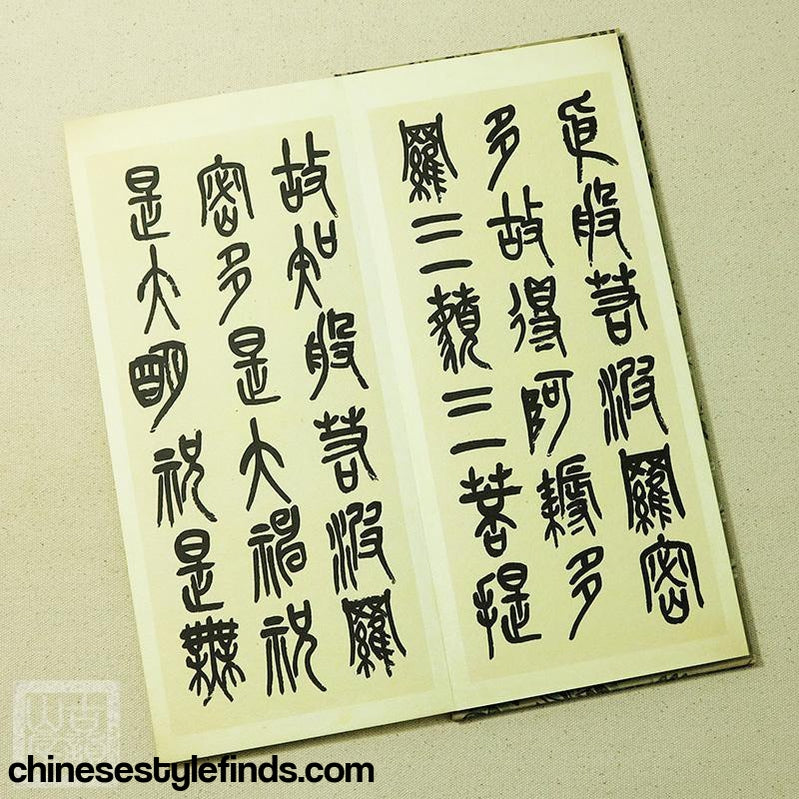 般若波羅密
多故得阿耨多
羅三藐三菩提
故知般若波羅
密多是大神祝
是大明祝是無
chinesestylefinds.com